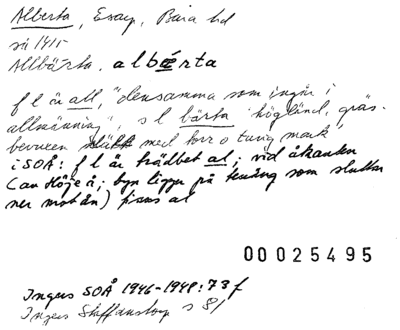 Alberta, Esarp, Bara hd
su 1415
Allbärta, albärta
f l är all, "densamma som ingår i
allmänning", s l bärta 'högländ, gräs-
bevuxen slätt med torr o tung mark',
i SOÅ: f l är trädbet al; vid åkanten
(an Höje å; byn ligger på terräng som sluttar
ner mot ån) finns al
00025495
Ingers SOÅ 1946-1948:73 f
Ingers Staffanstorp s 81